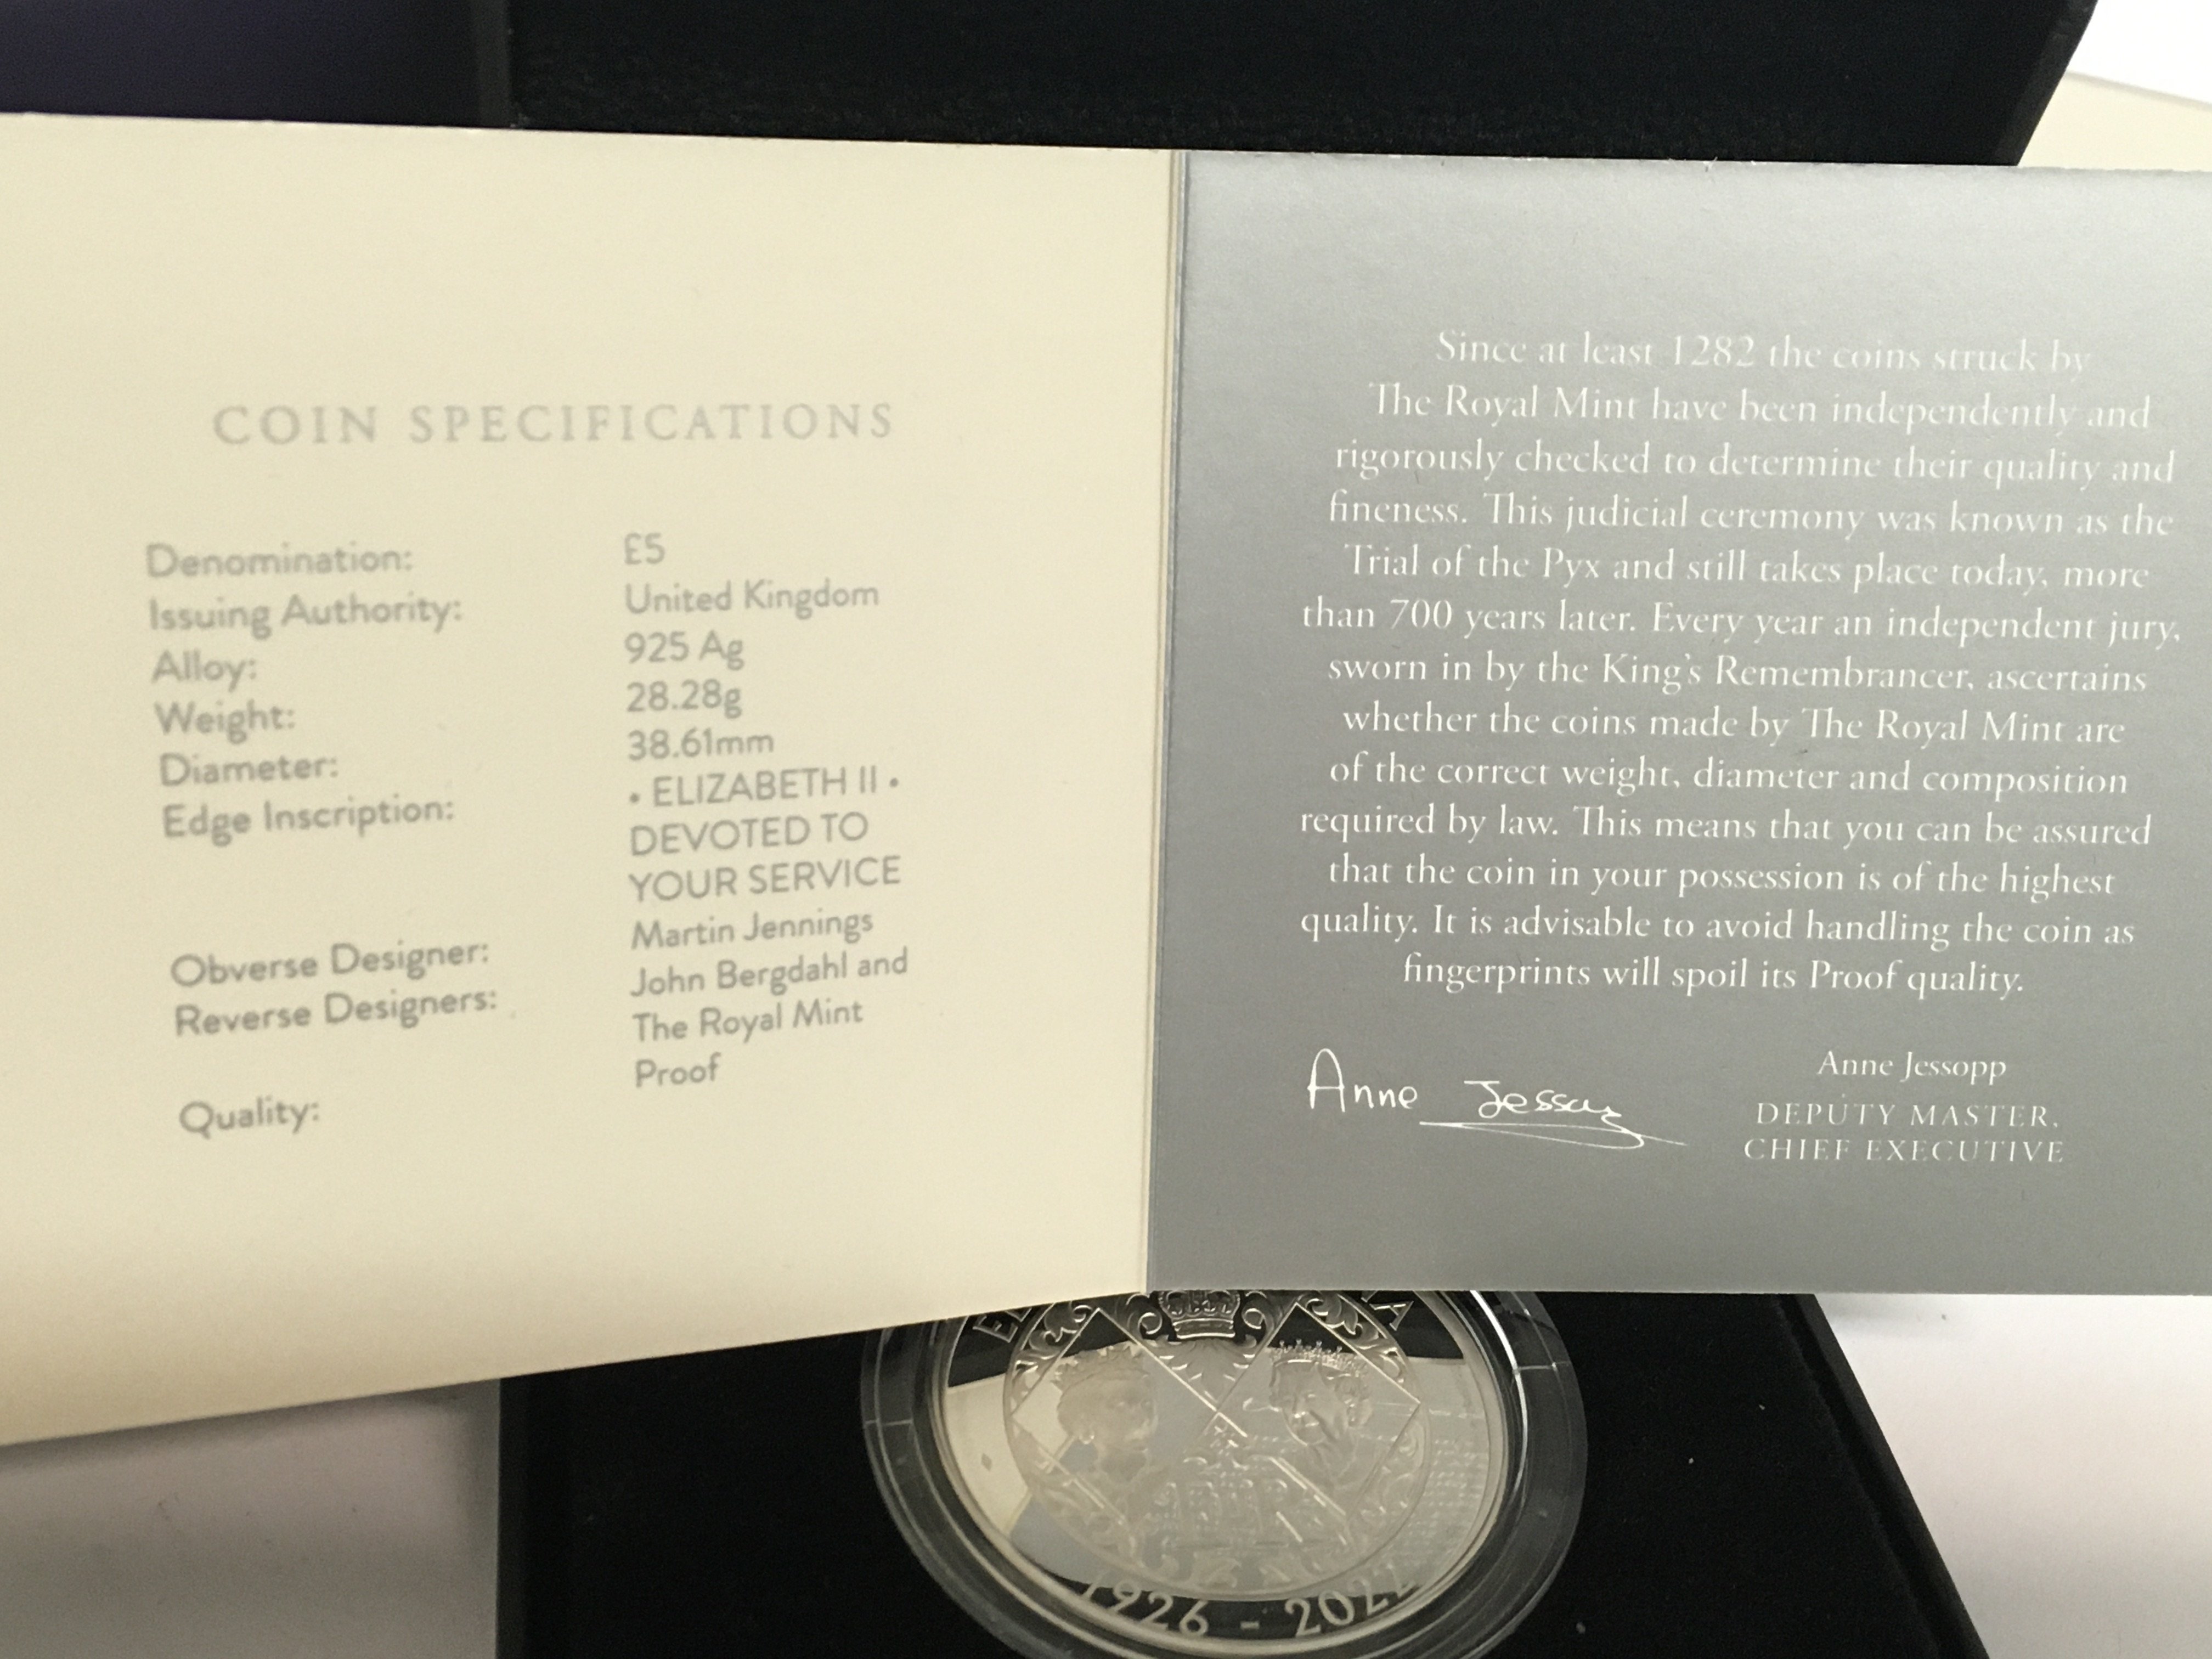 COIN SPECIFICATIONS
Denomination: £5
Issuing Authority: United Kingdom
Alloy: 925 Ag
Weight: 28.28g
Diameter: 38.61mm
Edge Inscription: • ELIZABETH II •
DEVOTED TO
YOUR SERVICE
Obverse Designer: Martin Jennings
Reverse Designers: John Bergdahl and
The Royal Mint
Quality: Proof
Since at least 1282 the coins struck by
The Royal Mint have been independently and
rigorously checked to determine their quality and
fineness. This judicial ceremony was known as the
Trial of the Pyx and still takes place today, more
than 700 years later. Every year an independent jury,
sworn in by the King's Remembrancer, ascertains
whether the coins made by The Royal Mint are
of the correct weight, diameter and composition
required by law. This means that you can be assured
that the coin in your possession is of the highest
quality. It is advisable to avoid handling the coin as
fingerprints will spoil its Proof quality.
Anne Jessopp
Anne Jessopp
DEPUTY MASTER,
CHIEF EXECUTIVE
1926 - 2022